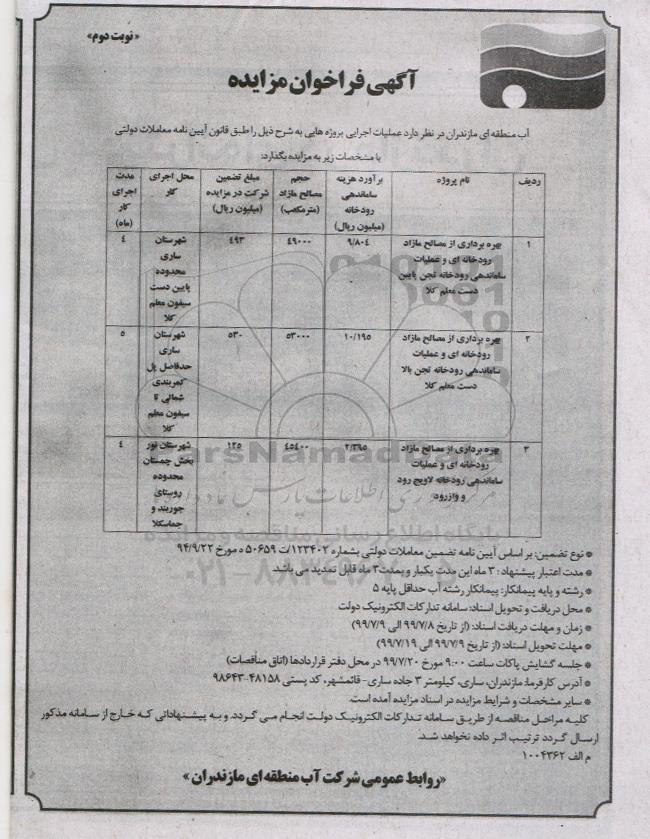 «نوبت دوم»
آگهی فراخوان مزایده
آب منطقه ای مازندران در نظر دارد عملیات اجرایی پروژه هایی به شرح ذیل را طبق قانون آیین نامه معاملات دولتی
با مشخصات زیر به مزایده بگذارد:
ردیف | نام پروژه | برآورد هزینه ساماندهی رودخانه (میلیون ریال) | حجم مصالح مازاد (مترمکعب) | مبلغ تضمین شرکت در مزایده (میلیون ریال) | محل اجرای کار | مدت اجرای کار (ماه)
۱ | بهره برداری از مصالح مازاد رودخانه ای و عملیات ساماندهی رودخانه تجن پایین دست معلم کلا | ۹/۸۰۴ | ۴۹۰۰۰ | ۴۹۳ | شهرستان ساری محدوده پایین دست سیفون معلم کلا | ۴
۲ | بهره برداری از مصالح مازاد رودخانه ای و عملیات ساماندهی رودخانه تجن بالا دست معلم کلا | ۱۰/۱۹۵ | ۵۳۰۰۰ | ۵۳۰ | شهرستان ساری حدفاصل پل کمربندی شمالی تا سیفون معلم کلا | ۵
۳ | بهره برداری از مصالح مازاد رودخانه ای و عملیات ساماندهی رودخانه لاویج رود و وازرود | ۲/۳۶۵ | ۴۵۴۰۰ | ۱۲۵ | شهرستان نور بخش چمستان محدوده روستای جوربند و جماسکلا | ۴
* نوع تضمین: بر اساس آیین نامه تضمین معاملات دولتی بشماره ۱۲۳۴۰۲/ت ۵۰۶۵۹ ه مورخ ۹۴/۹/۲۲
* مدت اعتبار پیشنهاد: ۳ ماه این مدت یکبار و بمدت ۳ ماه قابل تمدید می باشد.
* رشته و پایه پیمانکار: پیمانکار رشته آب حداقل پایه ۵
* محل دریافت و تحویل اسناد: سامانه تدارکات الکترونیک دولت
* زمان و مهلت دریافت اسناد: (از تاریخ ۹۹/۷/۸ الی ۹۹/۷/۹)
* مهلت تحویل اسناد: (از تاریخ ۹۹/۷/۹ الی ۹۹/۷/۱۹)
* جلسه گشایش پاکات ساعت ۹:۰۰ مورخ ۹۹/۷/۲۰ در محل دفتر قراردادها (اتاق مناقصات)
* آدرس کارفرما: مازندران، ساری، کیلومتر ۳ جاده ساری- قائمشهر، کد پستی ۴۸۱۵۸-۹۸۶۴۳
* سایر مشخصات و شرایط مزایده در اسناد مزایده آمده است.
کلیه مراحل مناقصه از طریق سامانه تدارکات الکترونیک دولت انجام می گردد. و به پیشنهاداتی که خارج از سامانه مذکور
ارسال گردد ترتیب اثر داده نخواهد شد.
م الف ۱۰۰۴۳۶۲
«روابط عمومی شرکت آب منطقه ای مازندران»
ParsNamadData
پایگاه اطلاع رسانی مناقصه و مزایده